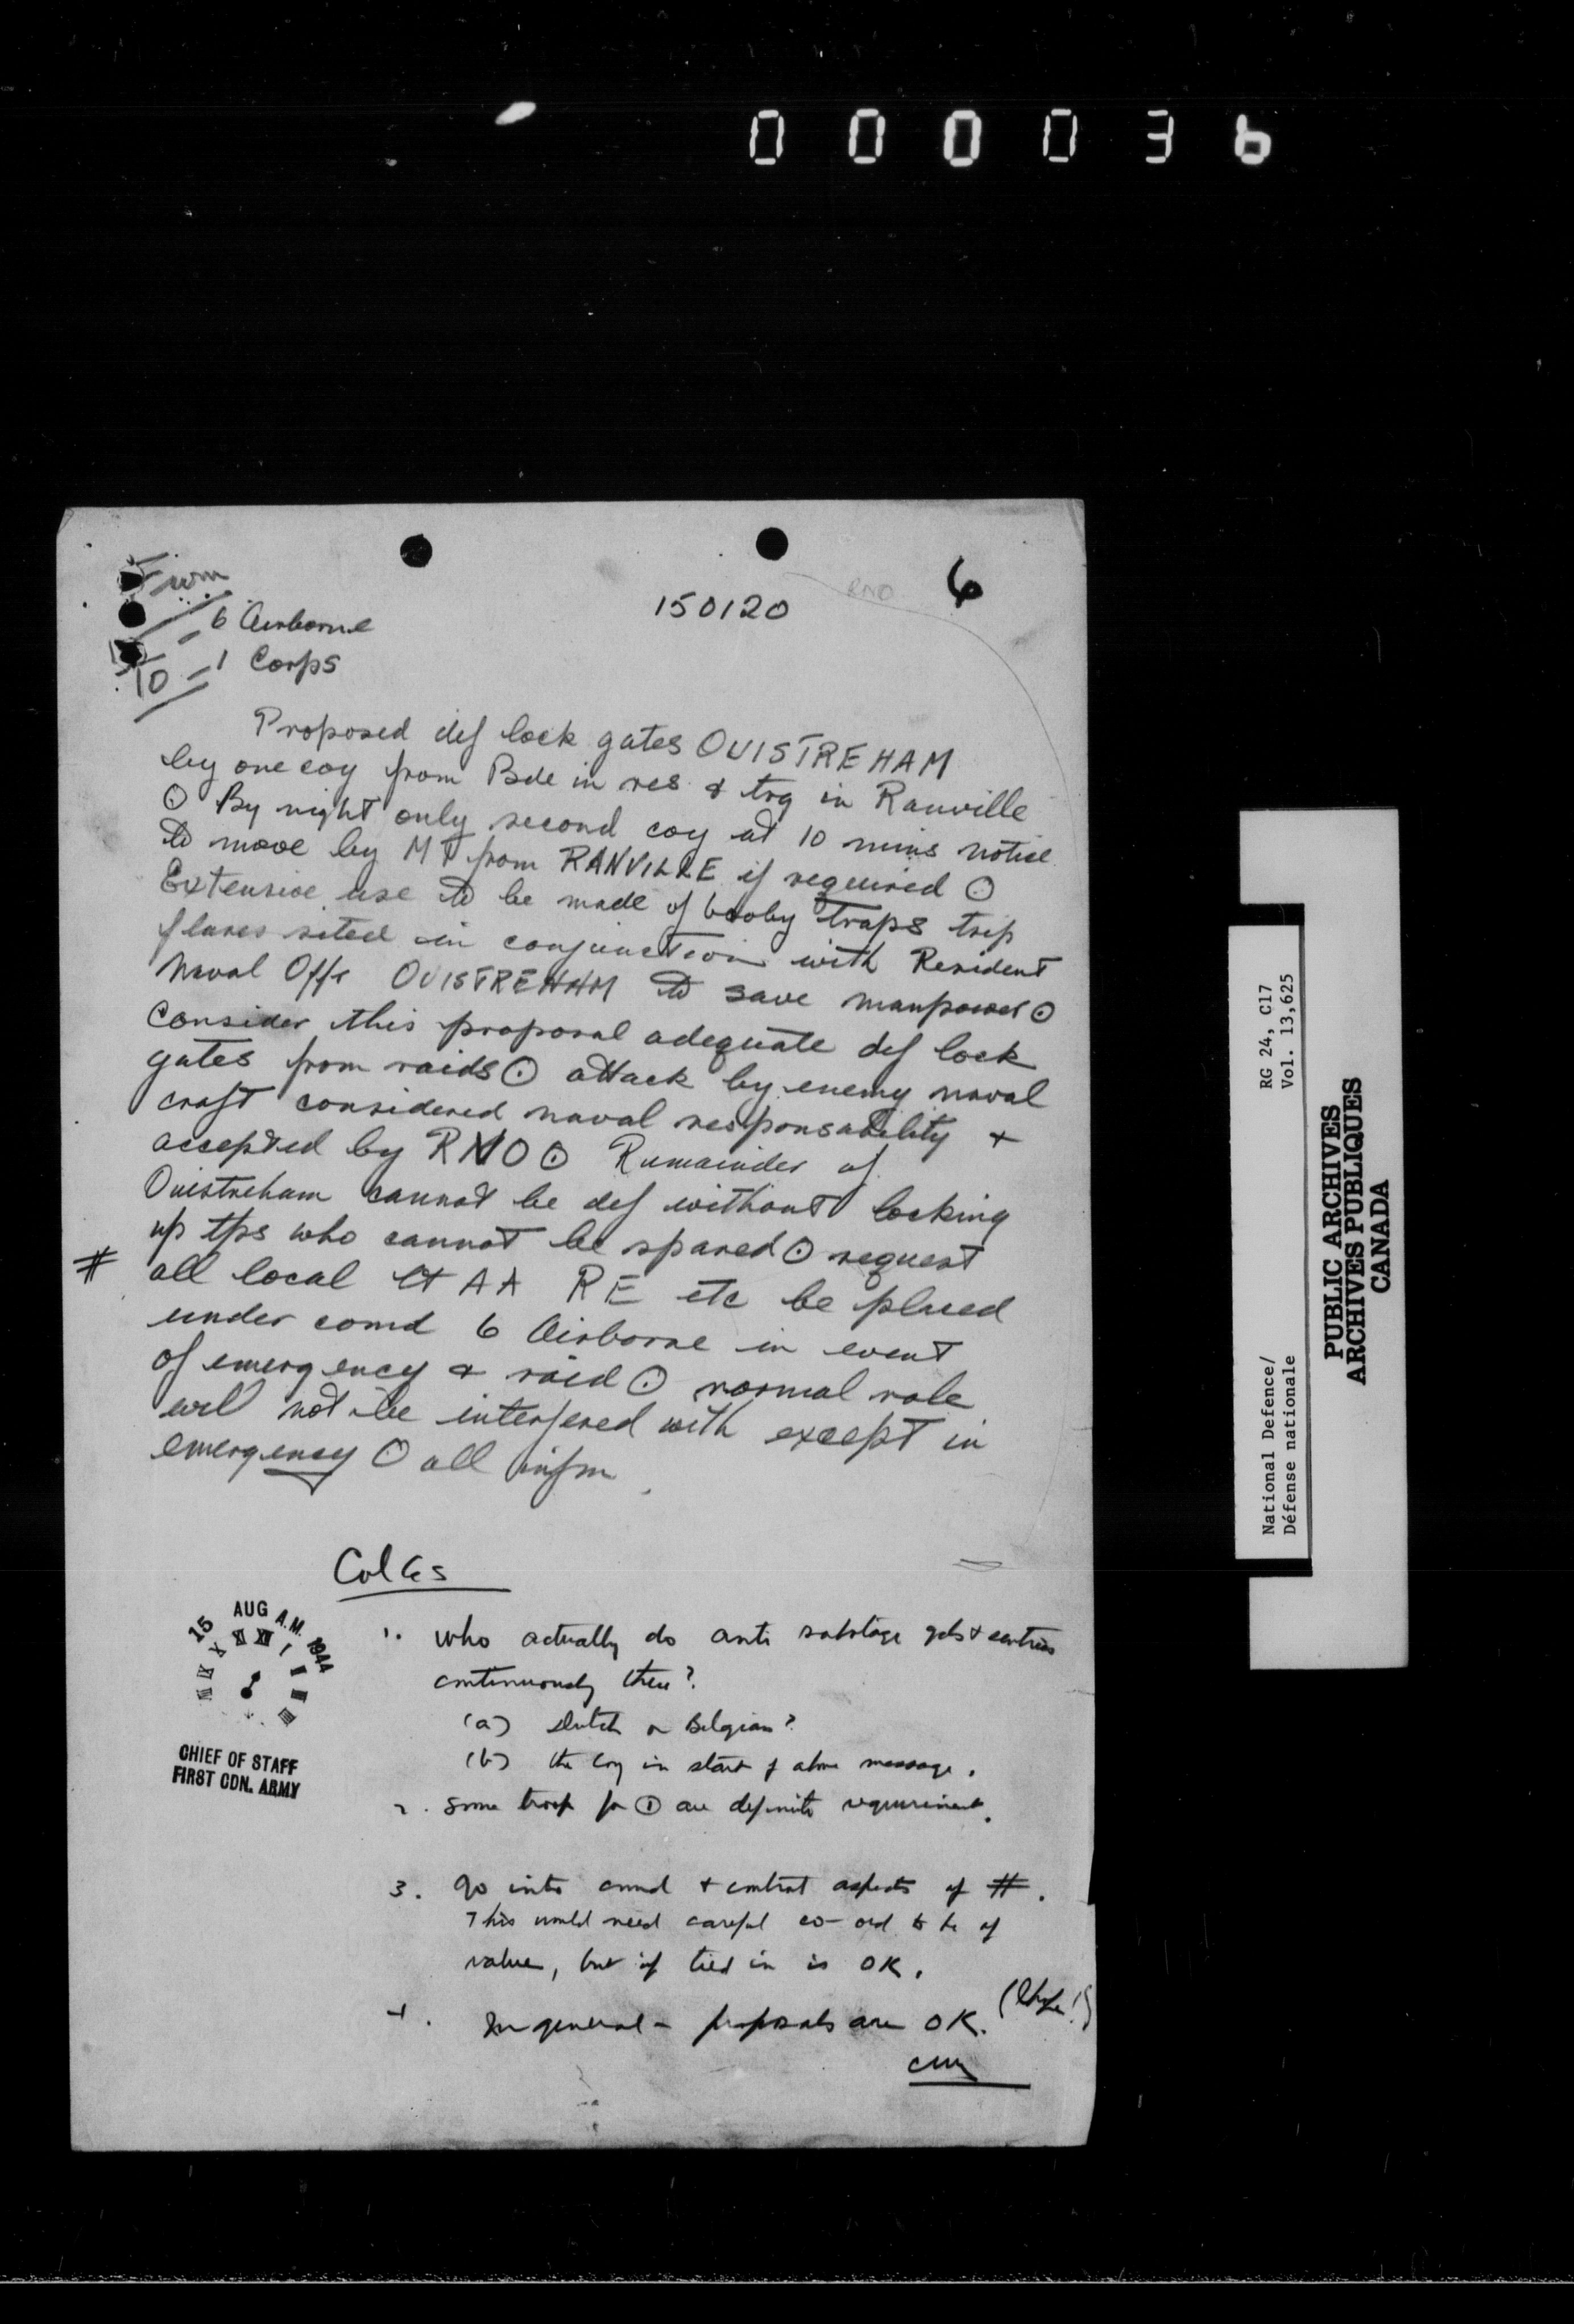 000036
From
6 Airborne
150120
RNO
6
TO - 1 Corps
Proposed def lock gates OUISTREHAM
by one coy from Bde in res & trg in Ranville
⊙ By night only second coy at 10 mins notice
to move by MT from RANVILLE if required ⊙
Extensive use to be made of booby traps trip
flares sited in conjunction with Resident
Naval Offr OUISTREHAM to save manpower ⊙
Consider this proposal adequate def lock
gates from raids ⊙ attack by enemy naval
craft considered naval responsability &
accepted by RNO ⊙ Remainder of
Ouistreham cannot be def without locking
up tps who cannot be spared ⊙ request
# all local Lt AA RE etc be placed
under comd 6 Airborne in event
of emergency & raid ⊙ normal role
will not be interfered with except in
emergency ⊙ all infm
Col GS
15 AUG A.M. 1944
CHIEF OF STAFF
FIRST CDN. ARMY
1. Who actually do anti sabotage gds & sentries
continuously there?
(a) Dutch or Belgian?
(b) the coy in start of above message.
2. Some troops for ① are definite requirement.
3. Go into comd & control aspects of #.
This would need careful co-ord to be of
value, but if tied in is OK.
4. In general - proposals are OK.
National Defence/
Défense nationale
RG 24, C17
Vol. 13,625
PUBLIC ARCHIVES
ARCHIVES PUBLIQUES
CANADA